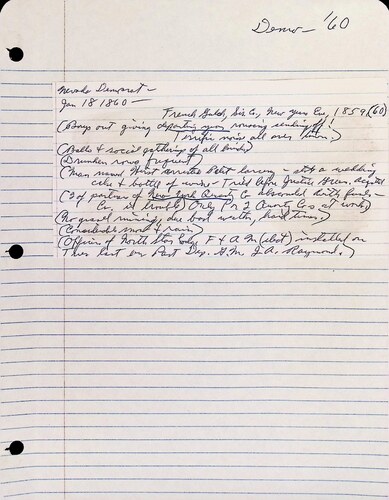 Demo - '60
Nevada Democrat -
Jan 18 1860 -
French Gulch, Sis. Co, New years Eve, 1859 (60)
(Boys out giving departing year rousing sendoff!
Terrific noise all over town.)
(Balls & social gatherings of all kinds)
(Drunken rows frequent)
(Man named West arrested petit larceny - stole a wedding
cake & bottle of wine - Tried before Justice
(3 of partners of New York Quartz Co absconded with funds
Co. in trouble) Only 1 or 2 Quartz Cos at work)
(No gravel mining, due bad weather, hard times.)
(Considerable snow & rain)
(Officers of North Star Lodge F & A M installed on
Tues last by Past Dep. G.M. J.A. Raymond.)